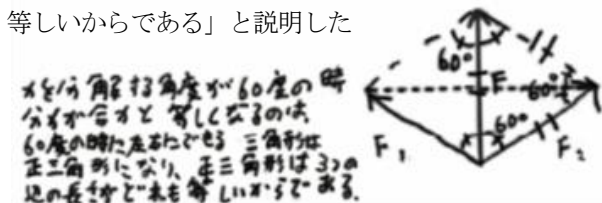 等しいからである」と説明した
力を分解する角度が60度の時
分力が合力と等しくなるのは、
60度の時に左右にできる三角形は
正三角形になり、正三角形は3つの
辺の長さがどれも等しいからである。
60°
F
60°
60°
F₁
F₂